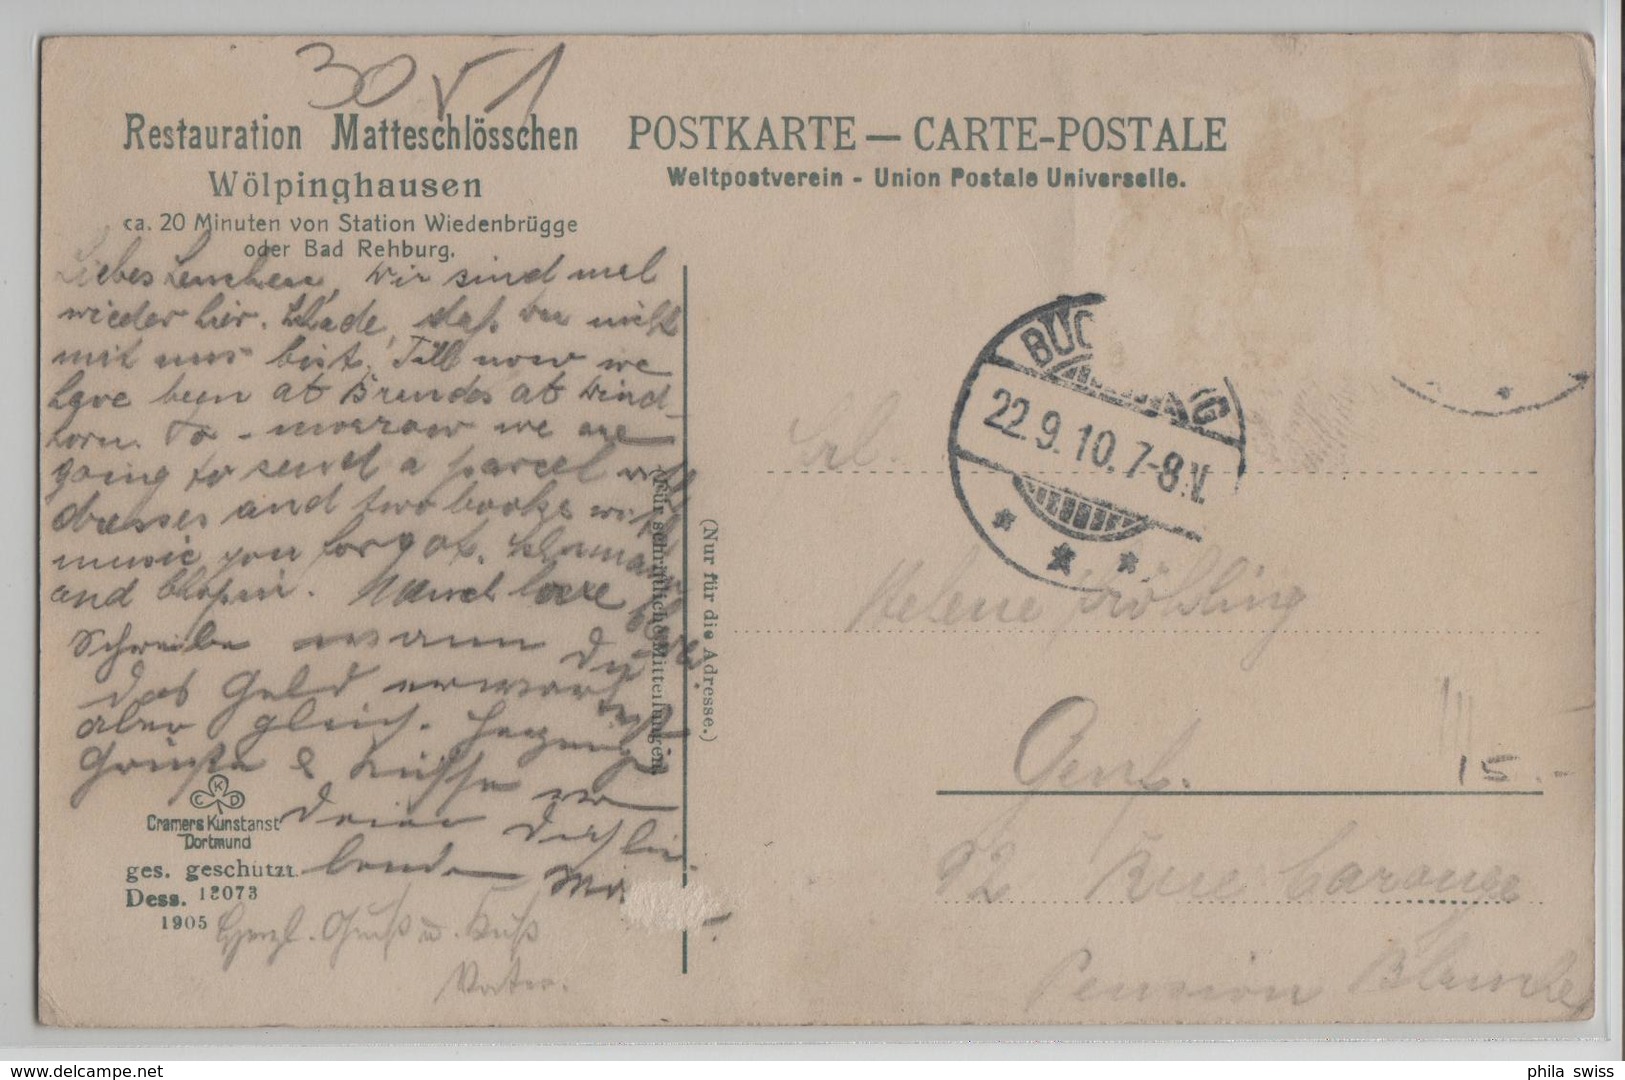 30 v 1
Restauration Matteschlösschen
Wölpinghausen
ca. 20 Minuten von Station Wiedenbrügge
oder Bad Rehburg.
POSTKARTE — CARTE-POSTALE
Weltpostverein - Union Postale Universelle.
Liebes Lenchen, Wir sind mal
wieder hier. Schade, daß du nicht
mit uns bist. Till now we
have been at Brundes at Wind-
horn. To-morrow we are
going to send a parcel with
dresses and two books with
music you forgot. Schumann
and Chopin. Much love
Schreibe wann Du
das Geld erwartest
aber gleich. Herzenge
Grüße & Küsse von
Deiner Dich lie-
benden
Herzl. Gruß u. Kuß
Vater.
C K D
Cramers Kunstanst
Dortmund
ges. geschützt.
Dess. 12073
1905
(Nur für die Adresse.)
für schriftliche Mitteilungen
BÜC AG
22.9.10.7-8V.
Frl.
Helene Fröhling
Genf.
15.-
92 Rue Carouge
Pension
delcampe.net
phila_swiss